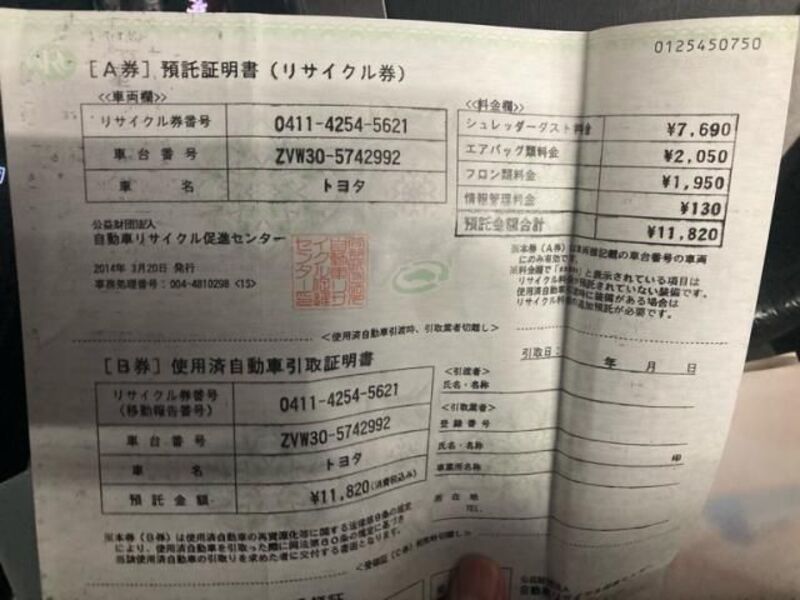 0125450750
[A券] 預託証明書（リサイクル券）
≪車両欄≫
リサイクル券番号 0411-4254-5621
車台番号 ZVW30-5742992
車名 トヨタ
≪料金欄≫
シュレッダーダスト料金 ¥7,690
エアバッグ類料金 ¥2,050
フロン類料金 ¥1,950
情報管理料金 ¥130
預託金額合計 ¥11,820
公益財団法人
自動車リサイクル促進センター
2014年 3月20日 発行
事務処理番号：004-4810298 <1S>
※本券（A券）は車両欄記載の車台番号の車両
にのみ有効です。
※料金欄で「*****」と表示されている項目は
リサイクル料金が預託されていない装備です。
使用済自動車引渡時に装備がある場合は
リサイクル料金の追加預託が必要です。
＜使用済自動車引渡時、引取業者切離し＞
[B券] 使用済自動車引取証明書
引取日： 年 月 日
リサイクル券番号
（移動報告番号） 0411-4254-5621
車台番号 ZVW30-5742992
車名 トヨタ
預託金額 ¥11,820（消費税込み）
＜引渡者＞
氏名・名称
＜引取業者＞
登録番号
氏名・名称 印
事業所名称
所在地
TEL.
※本券（B券）は使用済自動車の再資源化等に関する法律第80条の規定
により、使用済自動車を引取った際に同法第80条の規定に基づき
当該使用済自動車の引取りを求めた者に交付する書面となります。
公益財団法人